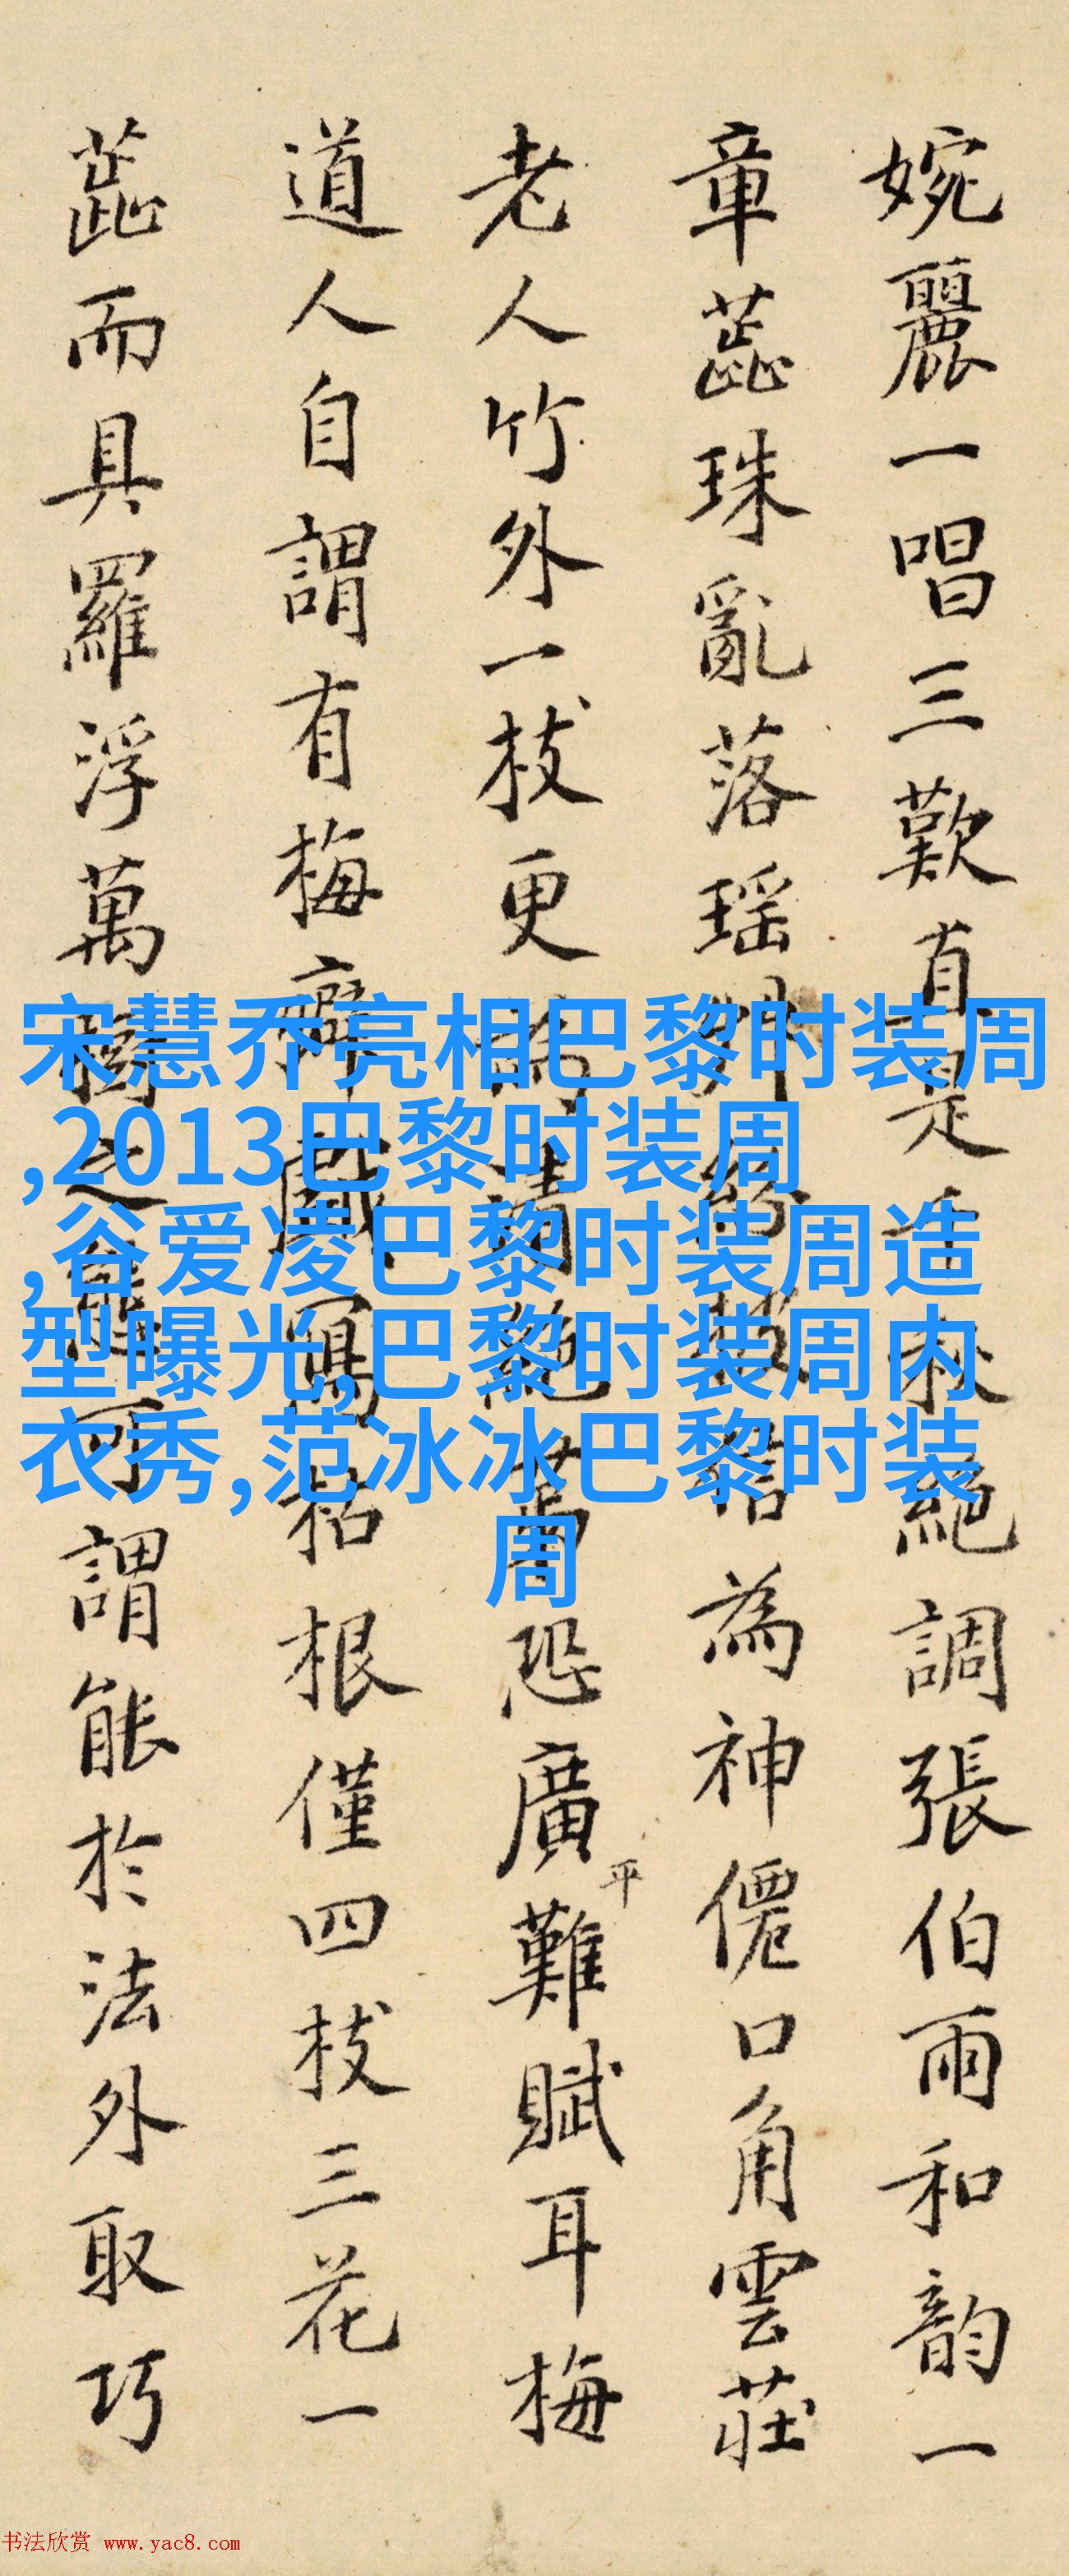 婉麗一唱三歎真是千秋絕調張伯雨和韵一
章蕊珠亂落瑶為神僊口角雲莊
老人竹外一枝更為清絕恐廣平難賦耳梅
道人自謂有梅癖戲寫枯根僅四枝三花一
蕊而具羅浮萬樹之可謂能於法外取巧
宋慧乔亮相巴黎时装周
,2013巴黎时装周
,谷爱凌巴黎时装周造
型曝光,巴黎时装周内
衣秀,范冰冰巴黎时装
周
书法欣赏 www.yac8.com